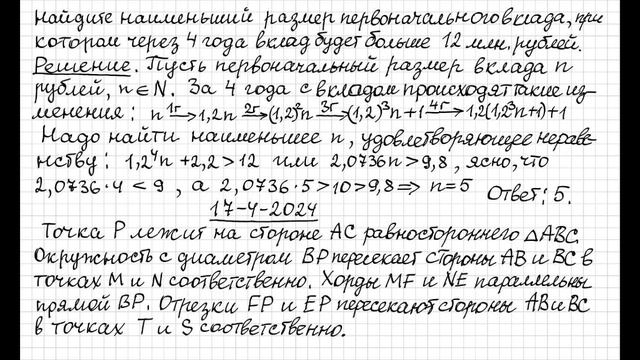 Найдите наименьший размер первоначального вклада, при
котором через 4 года вклад будет больше 12 млн. рублей.
Решение. Пусть первоначальный размер вклада n
рублей, n∈N. За 4 года с вкладом происходят такие из-
менения: n —1г→ 1,2n —2г→ (1,2)²n —3г→ (1,2)³n+1 —4г→ 1,2(1,2³n+1)+1
Надо найти наименьшее n, удовлетворяющее нерав-
нству: 1,2⁴n+2,2>12 или 2,0736n>9,8, ясно, что
2,0736·4<9, а 2,0736·5>10>9,8⇒ n=5 Ответ: 5.
17-4-2024
Точка P лежит на стороне AC равностороннего △ABC.
Окружность с диаметром BP пересекает стороны AB и BC в
точках M и N соответственно. Хорды MF и NE параллельны
прямой BP. Отрезки FP и EP пересекают стороны AB и BC
в точках T и S соответственно.